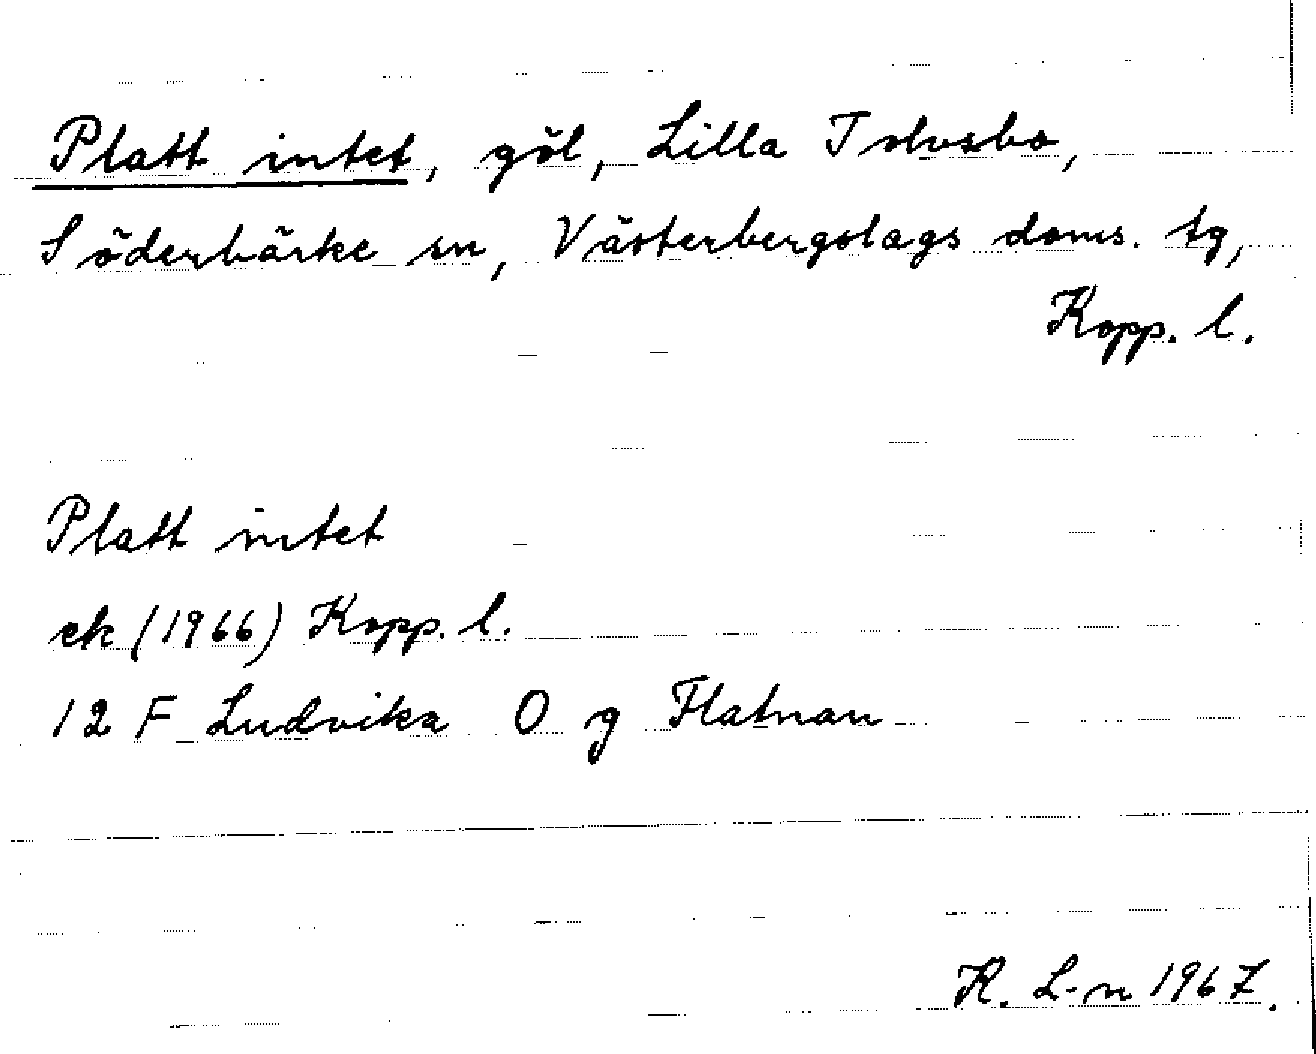 Platt intet, göl, Lilla Tolvsbo,
Söderbärke sn, Västerbergslags doms. tg,
Kopp. l.
Platt intet
ek (1966) Kopp. l.
12 F Ludvika O g Flatnan
R. L-n 1967.